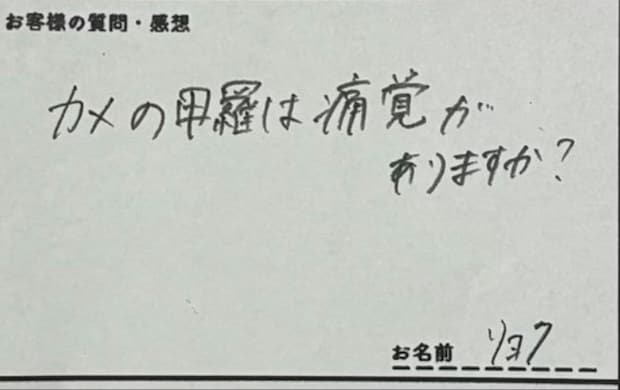 お客様の質問・感想
カメの甲羅は痛覚が
ありますか?
お名前 リョク